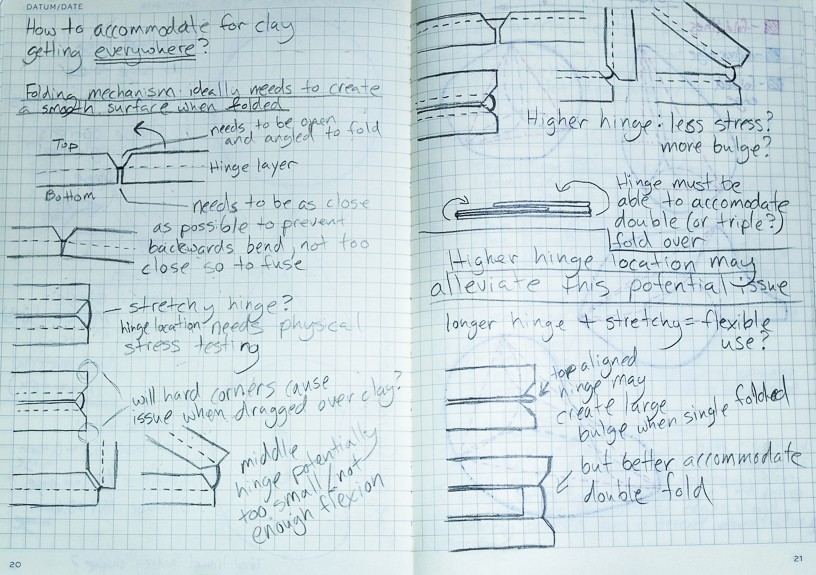 DATUM/DATE
How to accommodate for clay
getting everywhere?
Folding mechanism ideally needs to create
a smooth surface when folded
needs to be open
and angled to fold
Top
Hinge layer
Bottom
needs to be as close
as possible to prevent
backwards bend, not too
close so to fuse
stretchy hinge?
hinge location needs physical
stress testing
will hard corners cause
issue when dragged over clay?
middle
hinge potentially
too small/not
enough flexion
20
Higher hinge: less stress?
more bulge?
Hinge must be
able to accomodate
double (or triple?)
fold over
Higher hinge location may
alleviate this potential issue
longer hinge + stretchy = flexible
use?
top aligned
hinge may
create large
bulge when single folded
but better accommodate
double fold
21